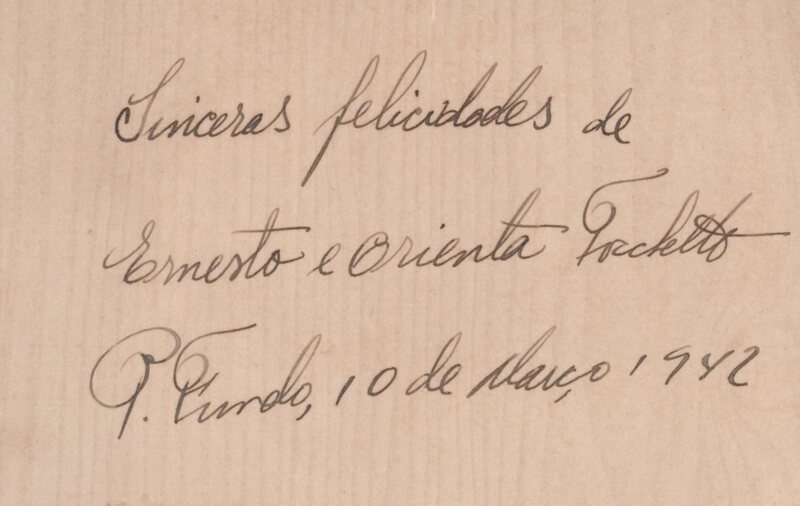 Sinceras felicidades de
Ernesto e Orienta Tochetto
P. Fundo, 10 de Março 1942